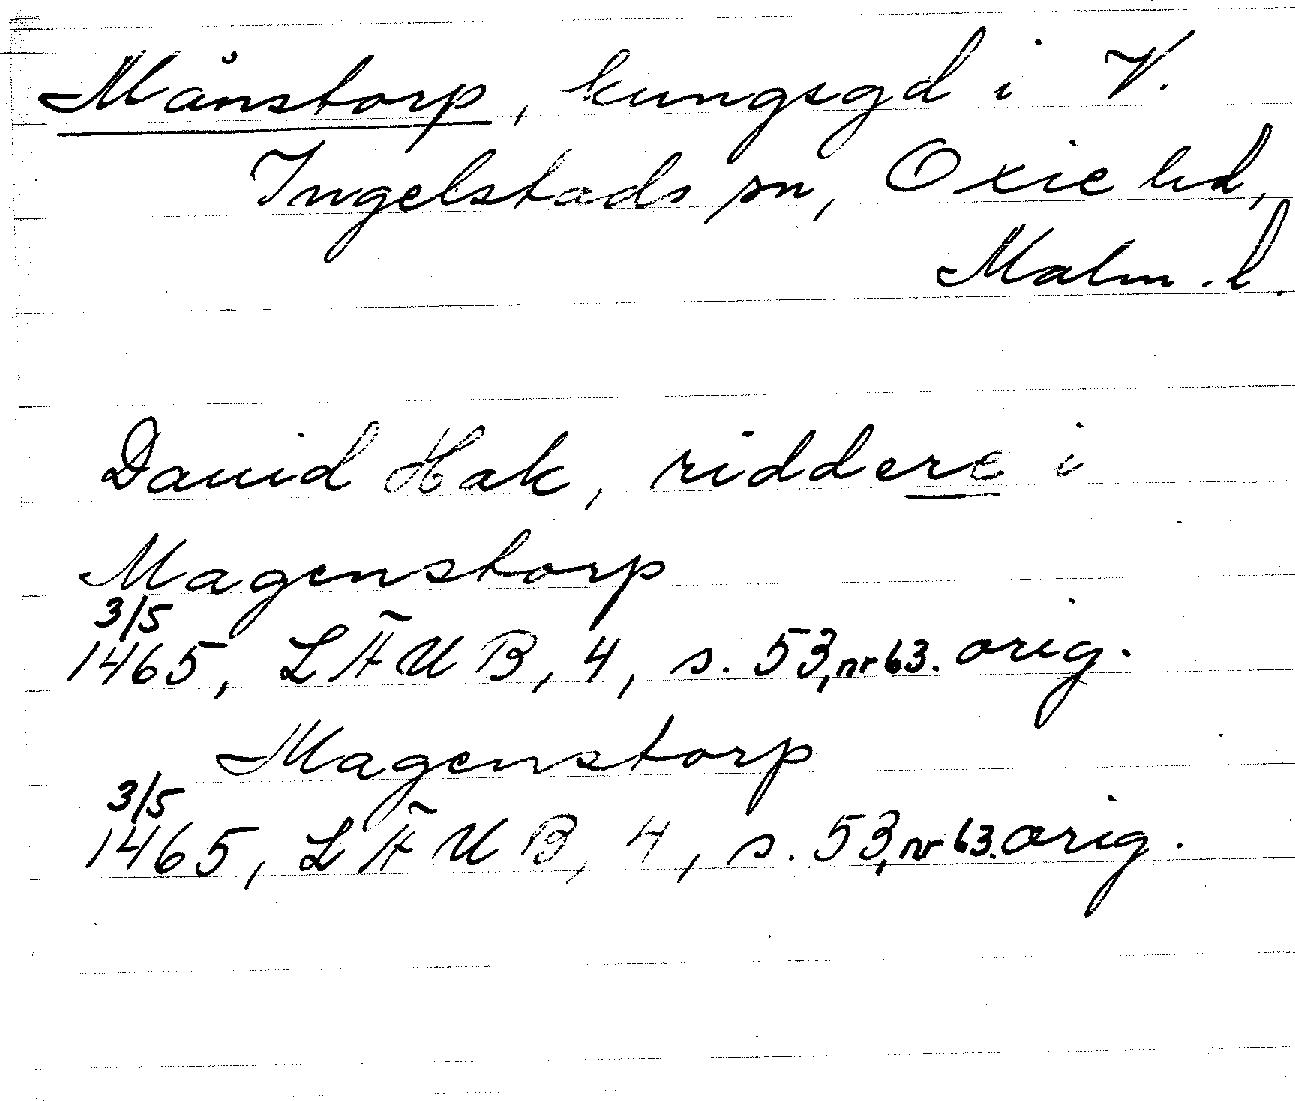 Månstorp, kungsgd i V.
Ingelstads sn, Oxie hd,
Malm. l.
Dauid Hak, riddere i
Magenstorp
3/5
1465, LÄUB, 4, s. 53, nr 63. orig.
Magenstorp
3/5
1465, LÄUB, 4, s. 53, nr 63. orig.